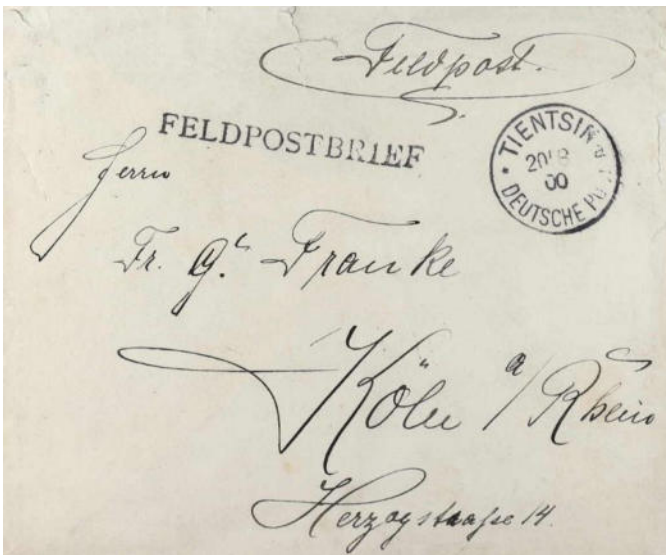 Feldpost.
FELDPOSTBRIEF
TIENTSIN
20/8
00
DEUTSCHE PO
Herrn
Fr. G. Franke
Köln a/Rhein
Herzogstraße 14.